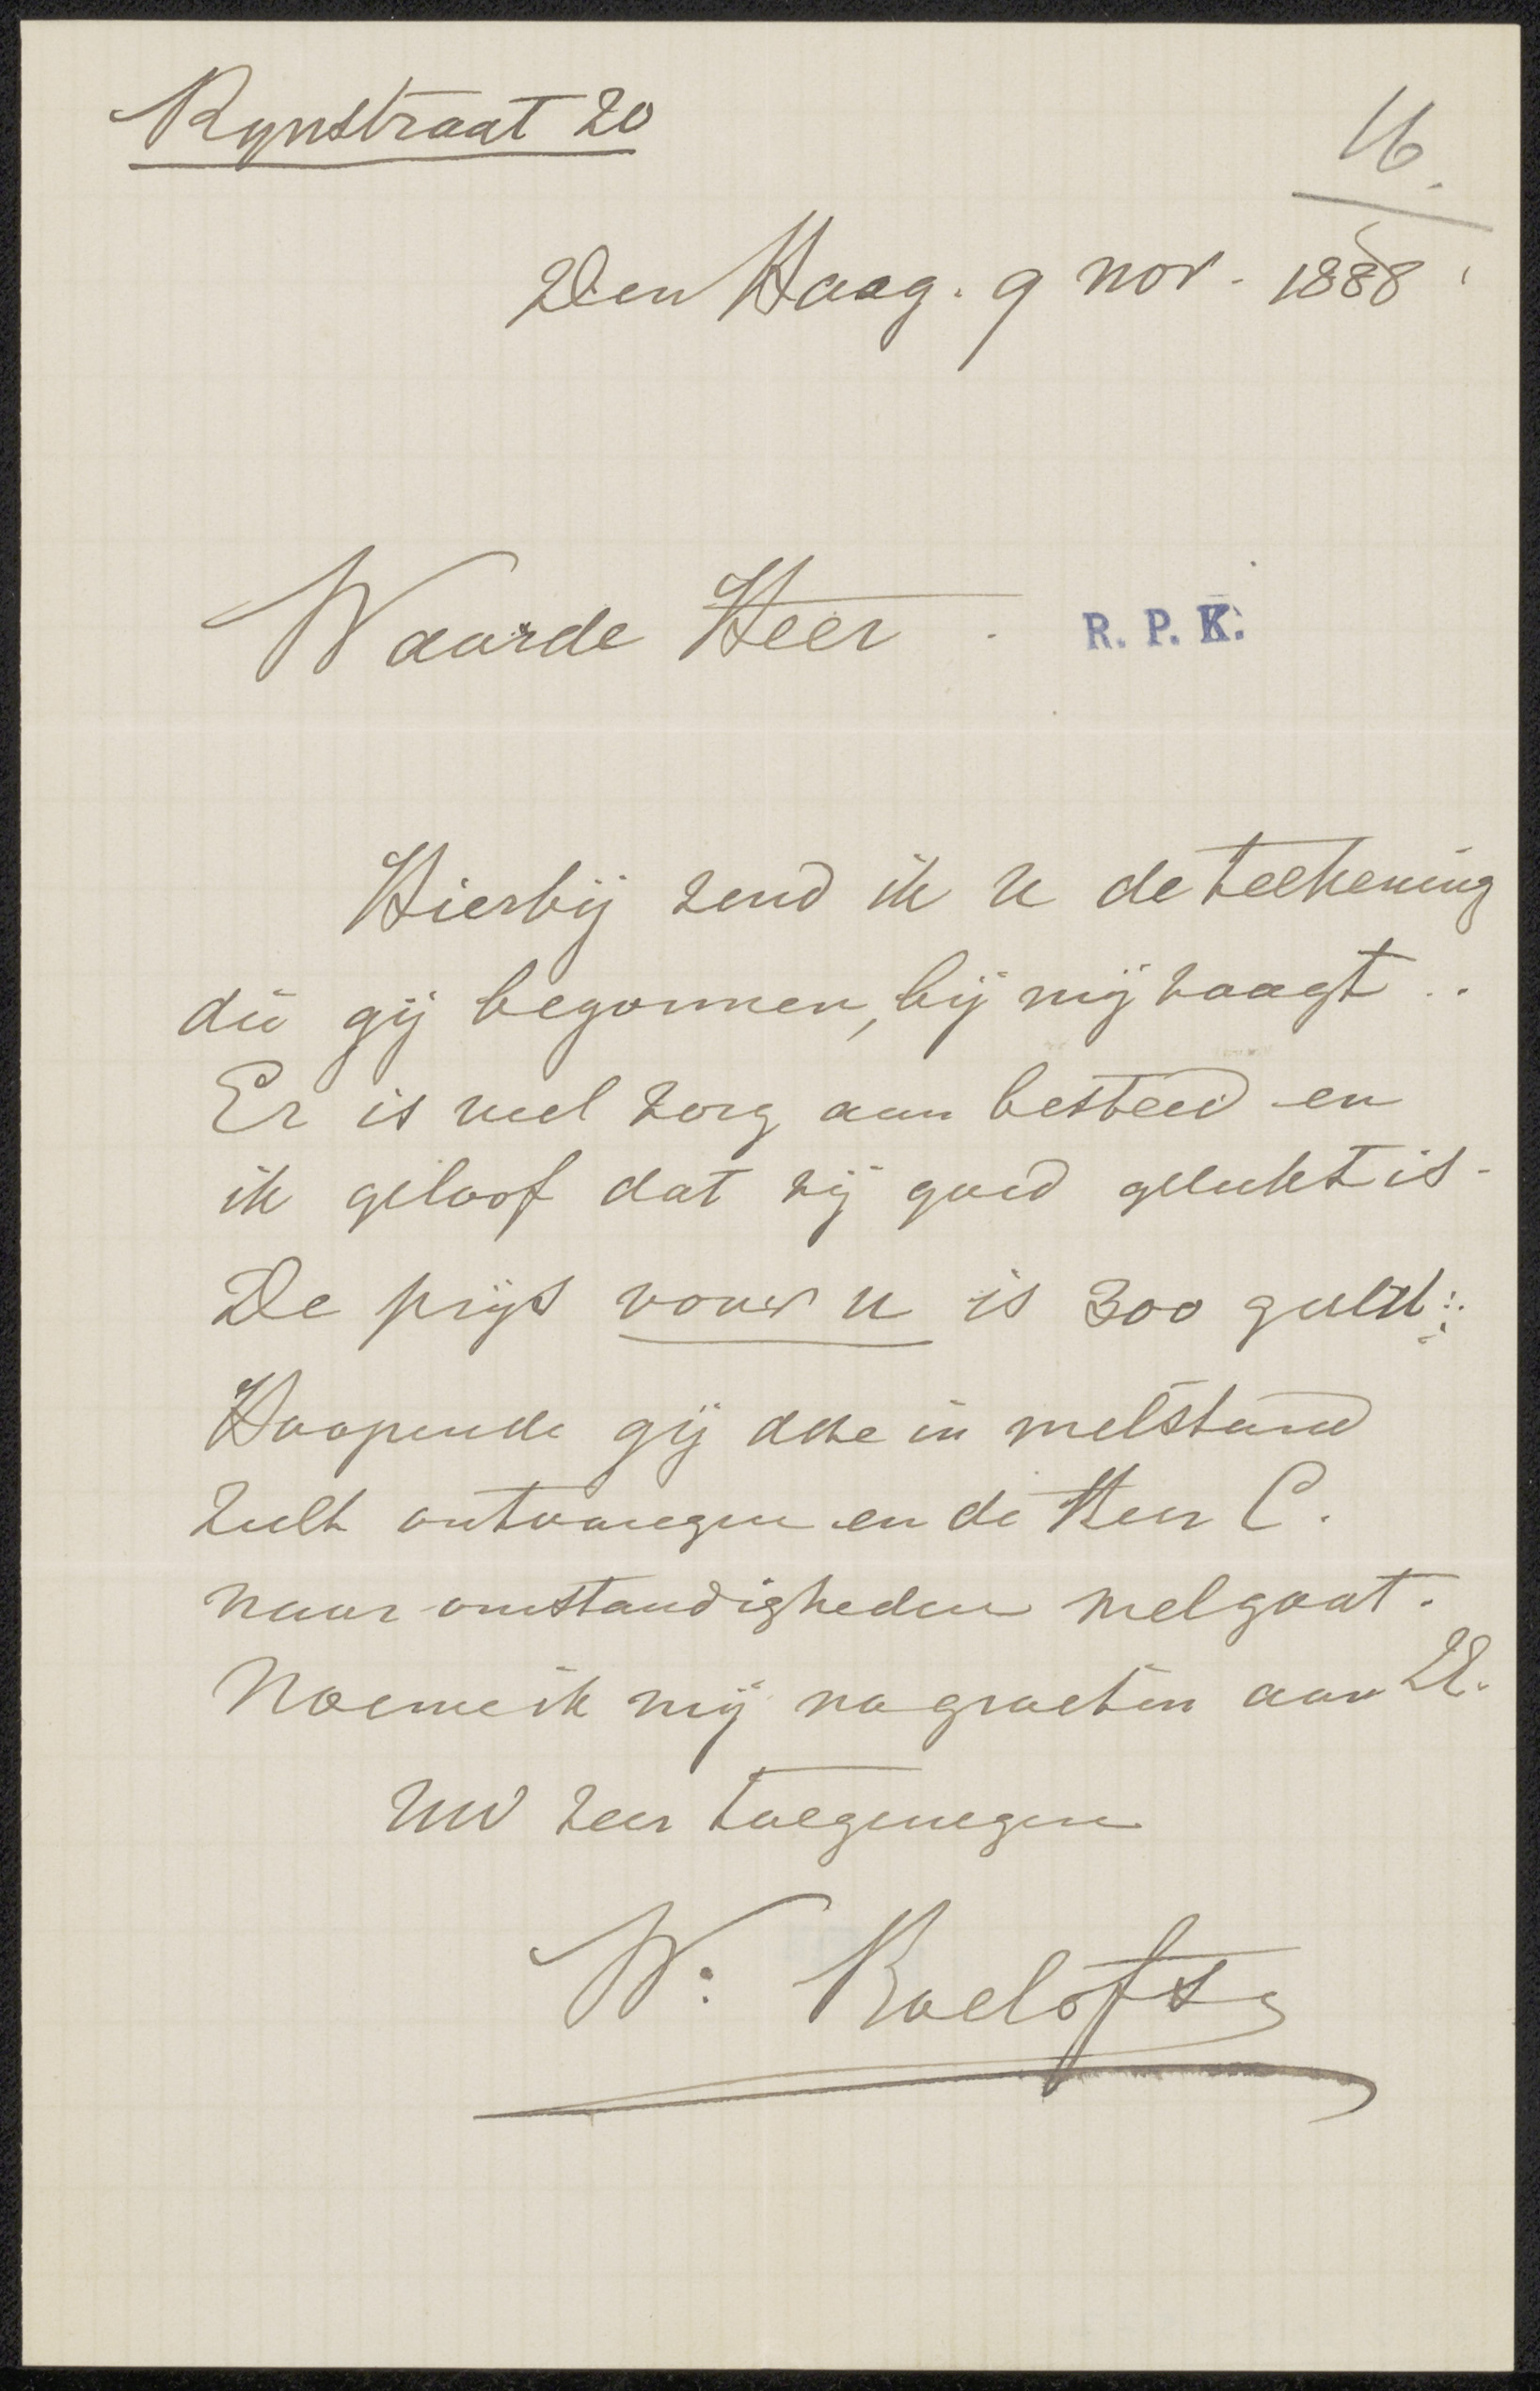 Rynstraat 20
16.
Den Haag. 9 nov. 1888
Waarde Heer
R. P. K.
Hierbij zend ik U de teekening
die gij begonnen, bij mij zaagt..
Er is veel zorg aan besteed en
ik geloof dat zij goed gelukt is.
De prijs voor u is 300 guld:
Hoopende gij dese in welstand
zult ontvangen en de Heer C.
naar omstandigheden wel gaat.
Noem ik mij na groeten aan U.
Uw zeer toegenegen
W. Roelofs